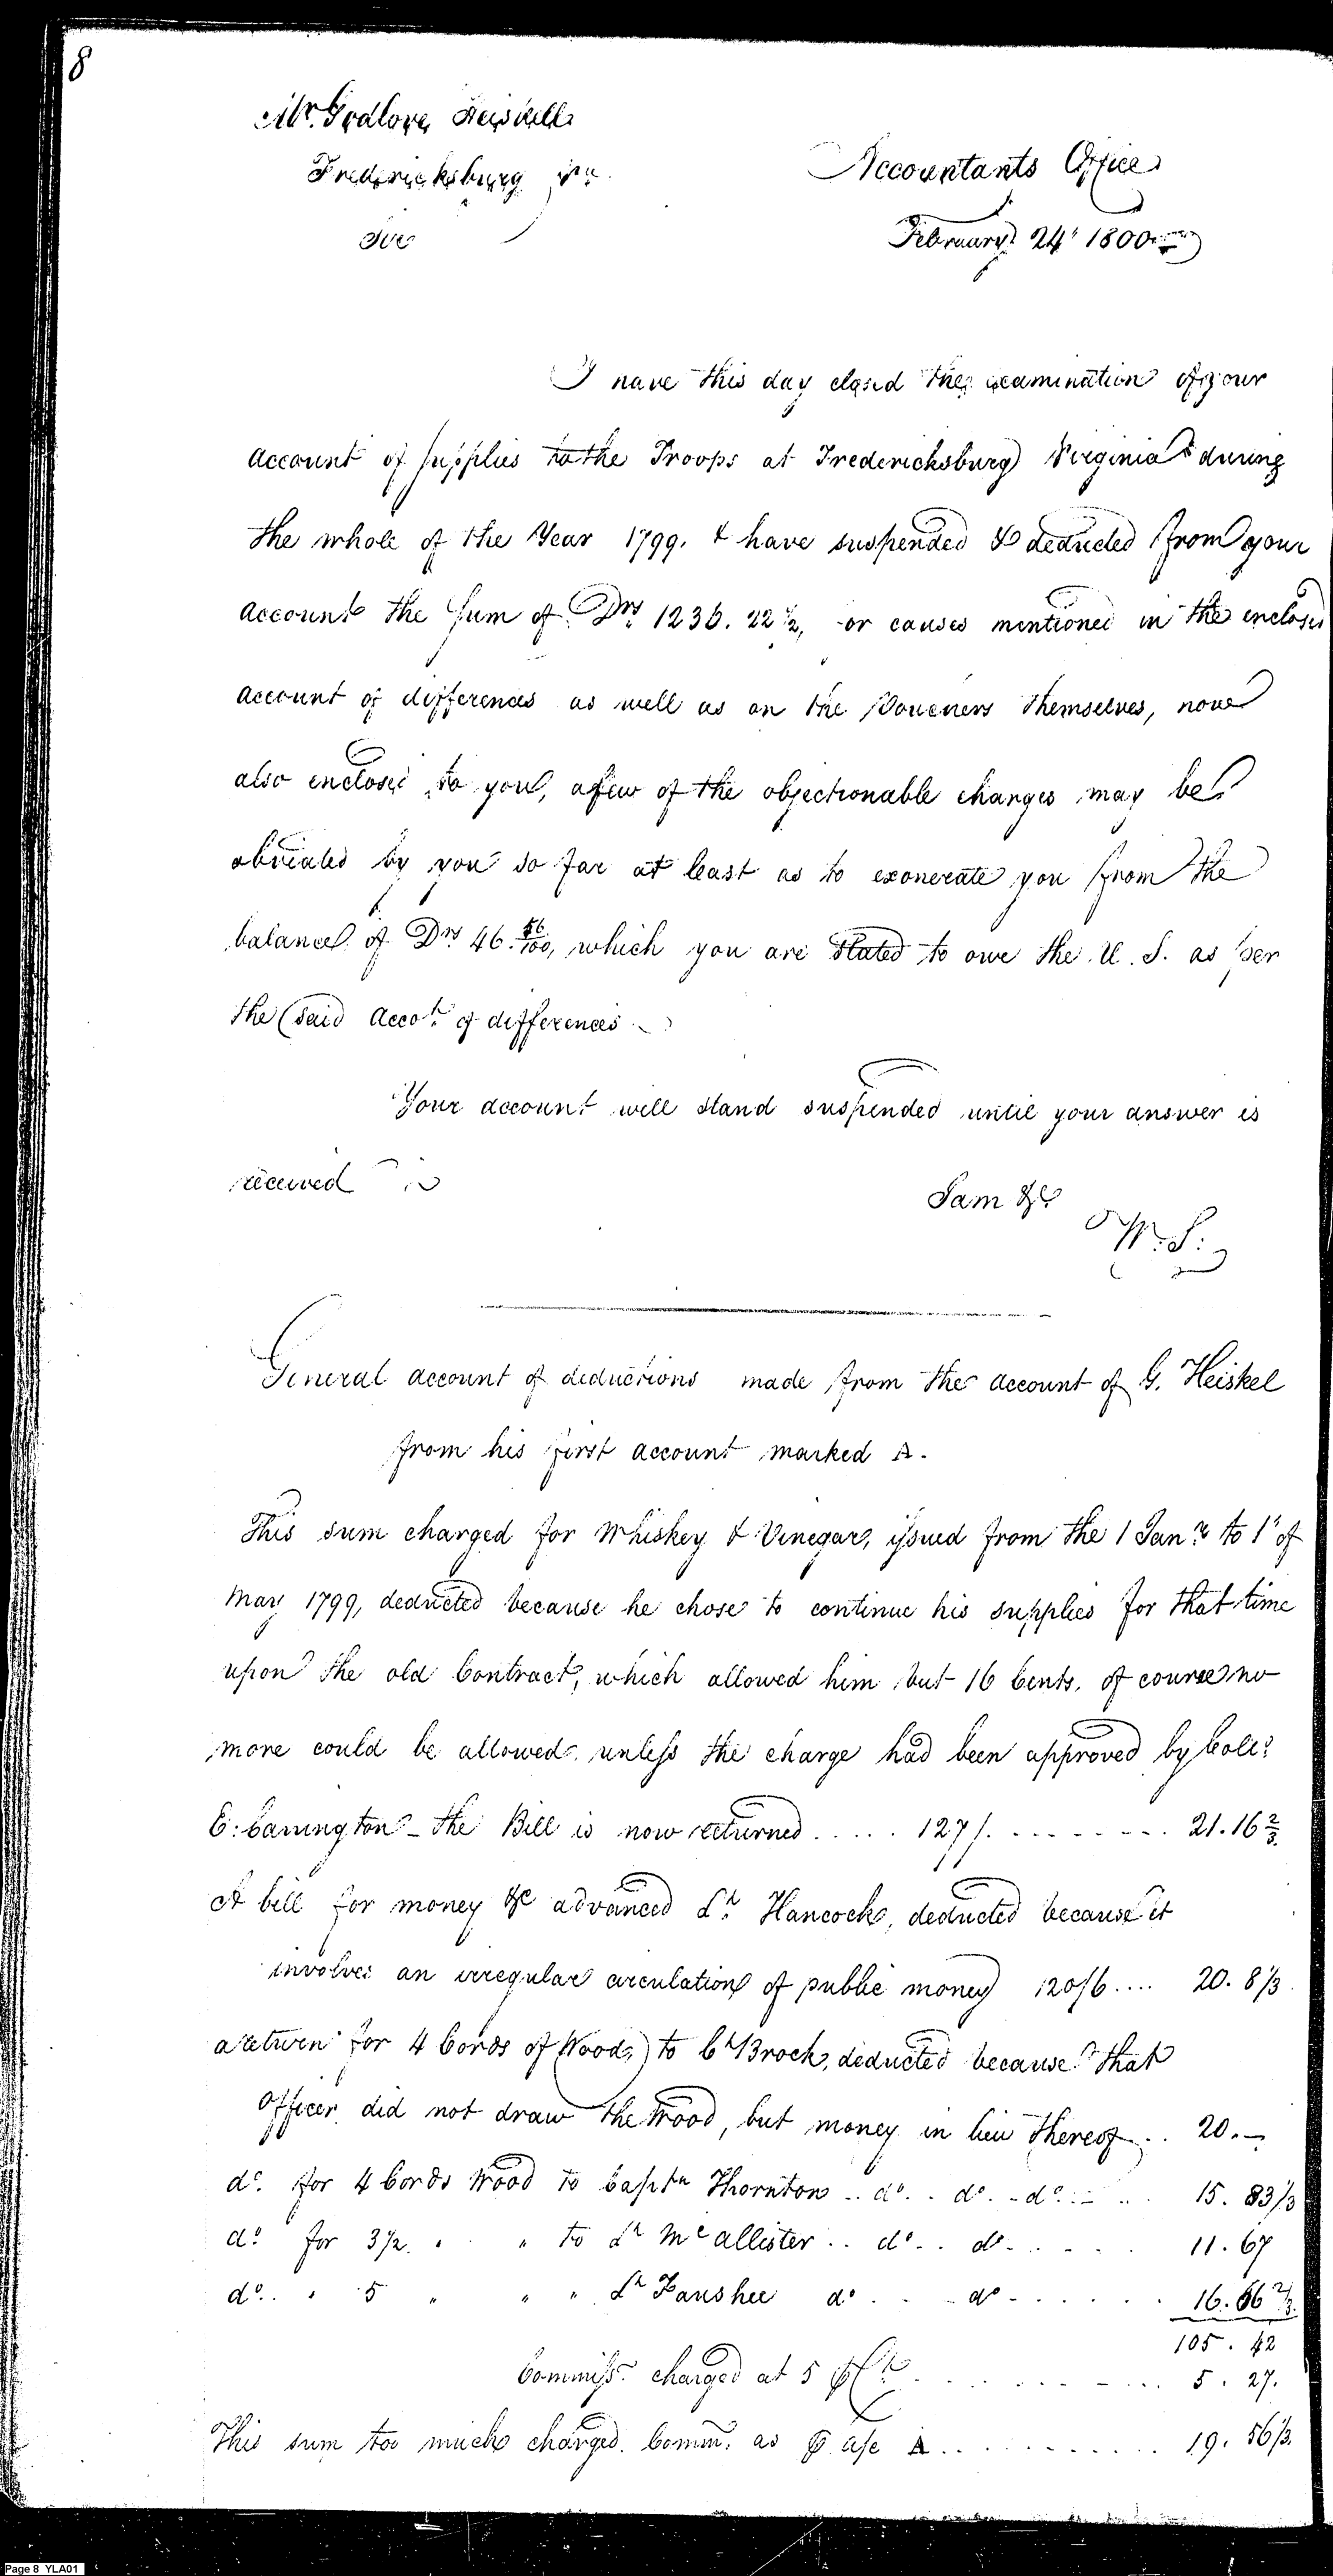 8
Mr. Godlove Heiskell
Fredericksburg Va.
Accountants Office
Sir
February 24th 1800
I have this day closed the examination of your
account of supplies to the Troops at Fredericksburg Virginia during
the whole of the Year 1799. & have suspended & deducted from your
account the sum of Drs. 1236. 22 1/2, for causes mentioned in the enclosed
account of differences as well as on the Vouchers themselves, now
also enclosed to you, a few of the objectionable charges may be
obviated by you so far at least as to exonerate you from the
balance of Drs 46. 56/100, which you are stated to owe the U. S. as per
the said Accot. of differences
Your account will stand suspended until your answer is
received
I am &c
W. S.
General account of deductions made from the account of G. Heiskel
from his first account marked A.
This sum charged for Whiskey & Vinegar, issued from the 1 Jany. to 1st of
May 1799, deducted because he chose to continue his supplies for that time
upon the old Contract, which allowed him but 16 Cents. of course no
more could be allowed unless the charge had been approved by Colo.
E: Carrington - the Bill is now returned ..... 127/. ........ 21.16 2/3
A bill for money &c advanced Lt. Hancock, deducted because it
involves an irregular circulation of public money 120/6 .... 20. 8 1/3
a return for 4 Cords of Wood, to Ct Brock, deducted because that
Officer did not draw the Wood, but money in lieu thereof .. 20.—
do. for 4 Cords Wood to Captn Thornton .. do. . do. - do. .. 15. 83 1/3
do. for 3 1/2 " " to Lt McCallister .. do .. do. ..... 11. 67
do. . " 5 " " " Lt Fanshee do. . . do ...... 16. 66 2/3.
105. 42
Commissn. charged at 5 ⅌ Ct ......... 5. 27.
This sum too much charged. Commn. as ⅌ a/c A ......... 19. 56 1/3.
Page 8 YLA01